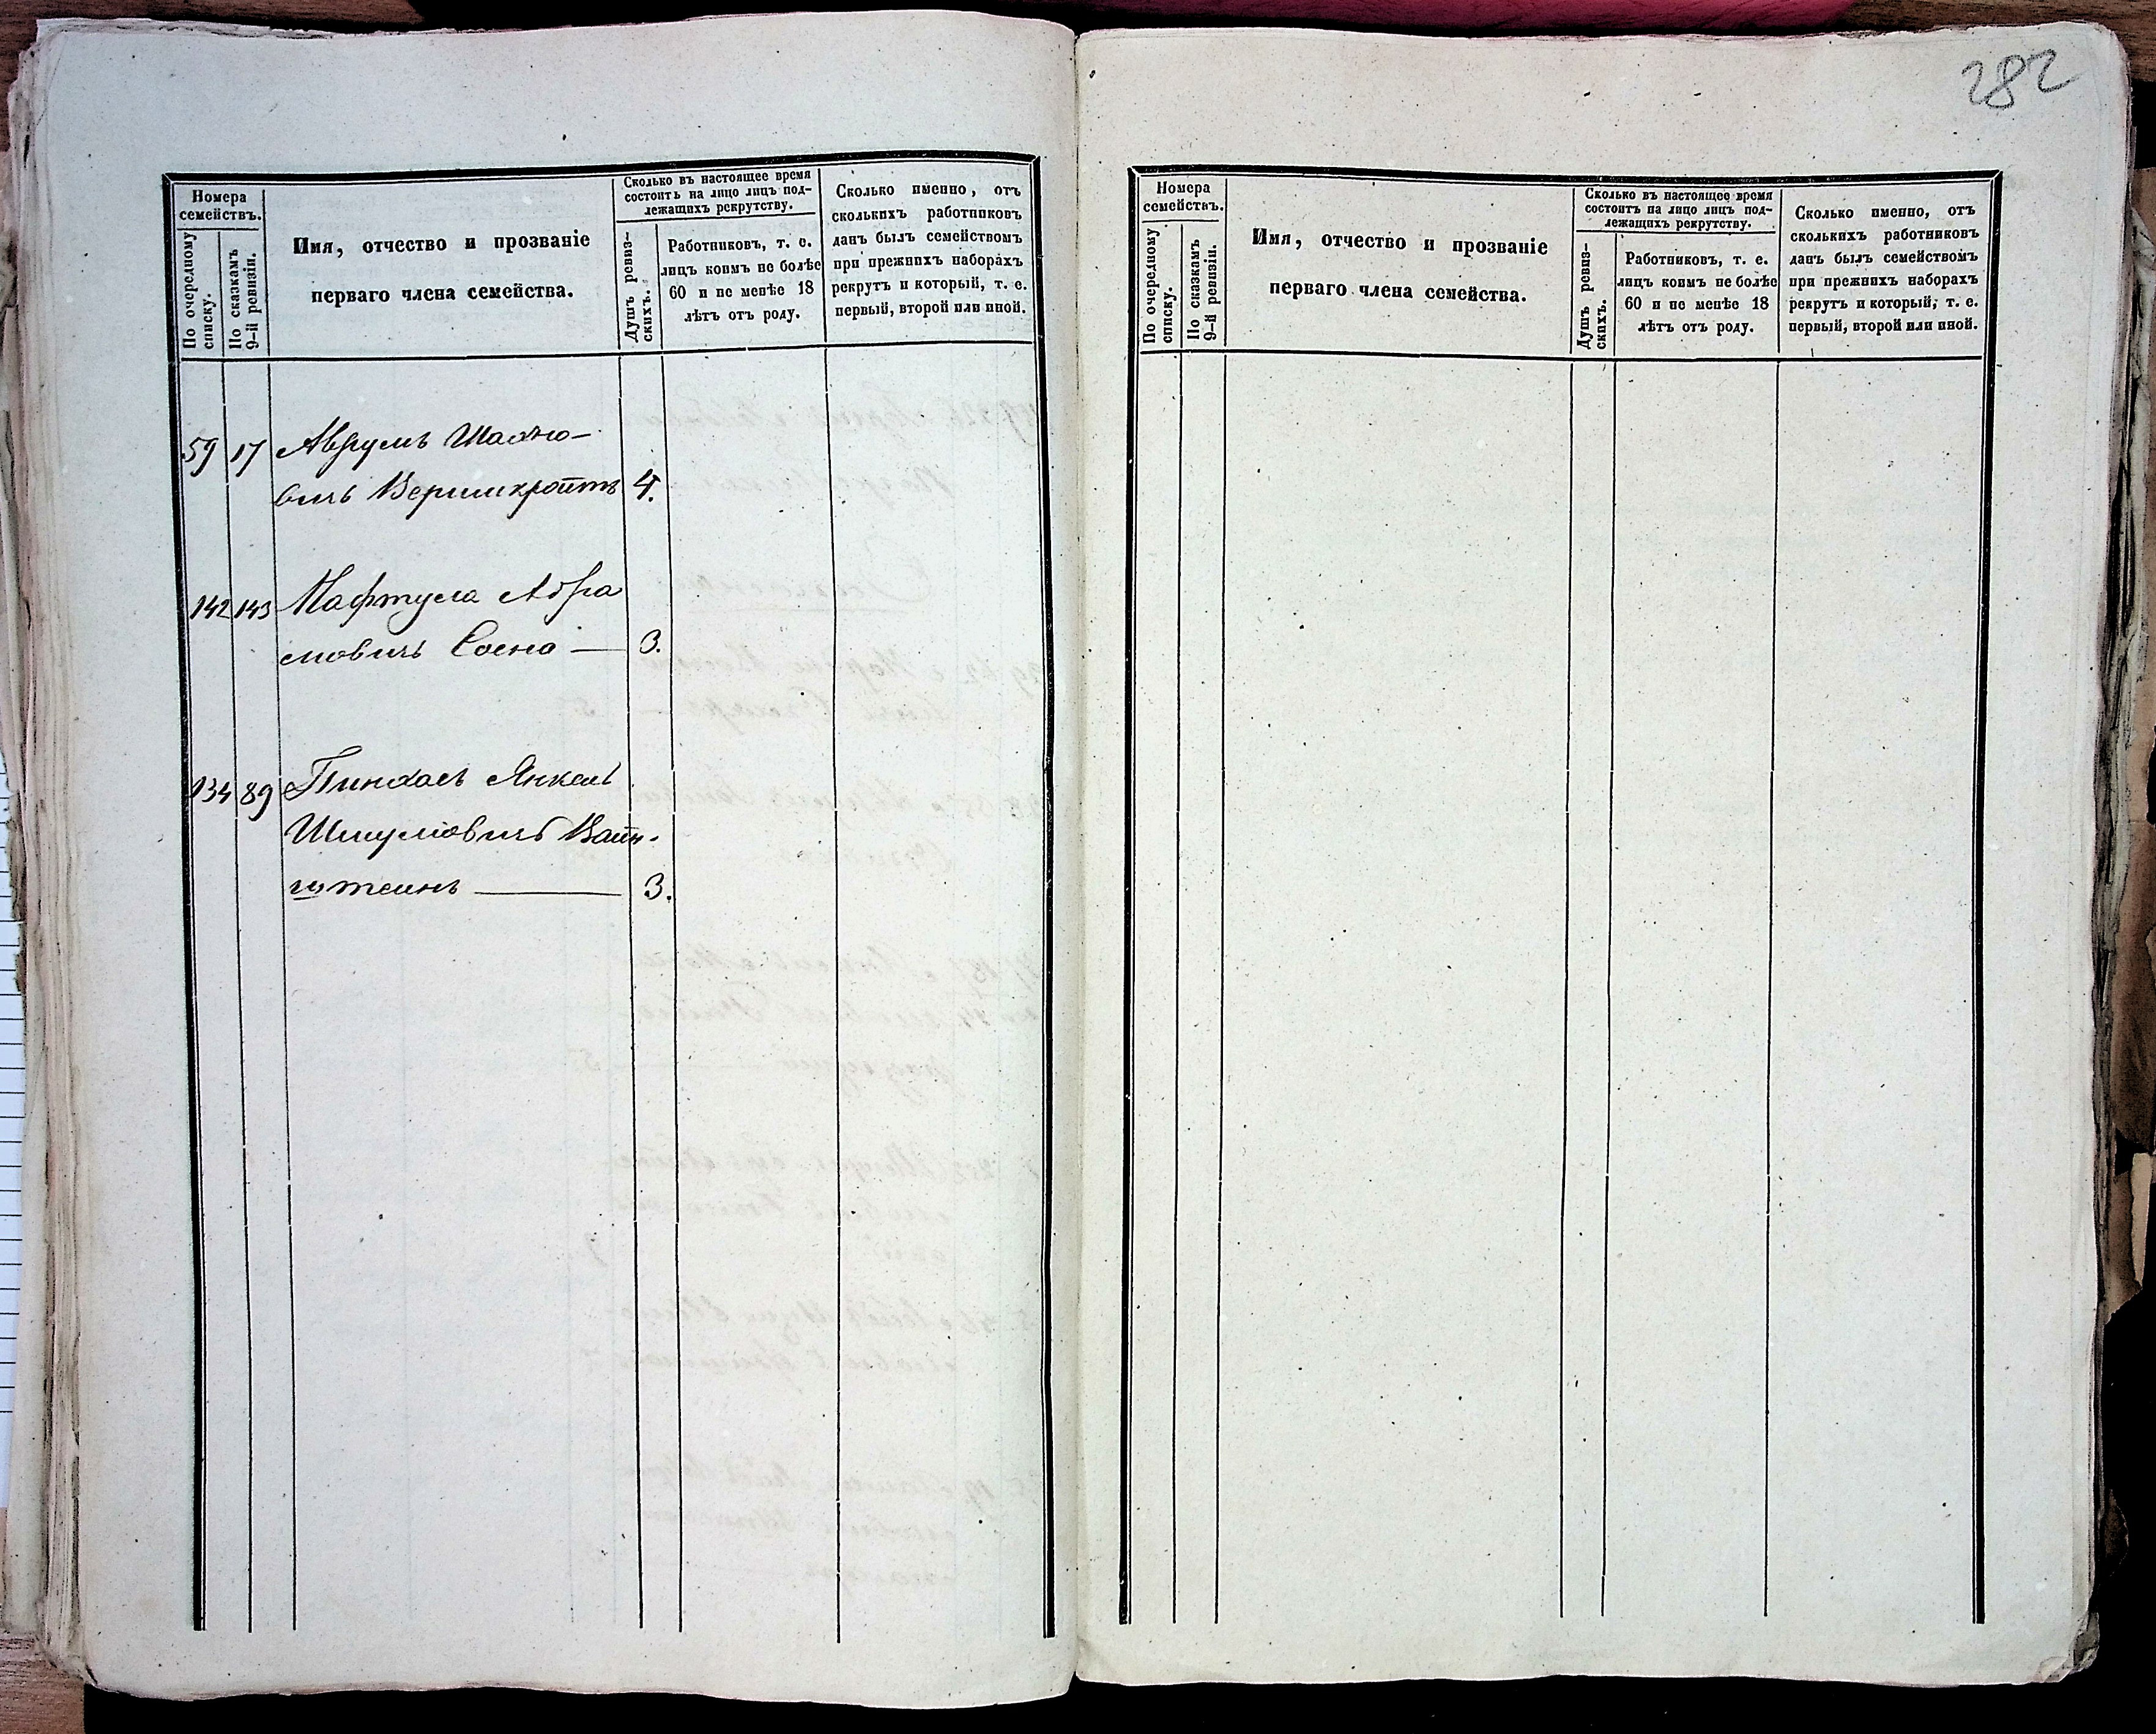 282
Номера
семействъ.
По очередному
списку.
По сказкамъ
9-й ревизіи.
Имя, отчество и прозваніе
перваго члена семейства.
Сколько въ настоящее время
состоитъ на лицо лицъ под-
лежащихъ рекрутству.
Душъ ревиз-
скихъ.
Работниковъ, т. е.
лицъ коимъ не болѣе
60 и не менѣе 18
лѣтъ отъ роду.
Сколько именно, отъ
сколькихъ работниковъ
данъ былъ семействомъ
при прежнихъ наборахъ
рекрутъ и который, т. е.
первый, второй или иной.
59 17 Аврумъ Шаоло-
вичъ Вершкройтъ 4.
142 143 Нафтула Абра
мовичъ Сосна — 3.
134 89 Пинхасъ Янкель
Шмуловичъ Вайн-
штеинъ — 3.
Номера
семействъ.
По очередному
списку.
По сказкамъ
9-й ревизіи.
Имя, отчество и прозваніе
перваго члена семейства.
Сколько въ настоящее время
состоитъ на лицо лицъ под-
лежащихъ рекрутству.
Душъ ревиз-
скихъ.
Работниковъ, т. е.
лицъ коимъ не болѣе
60 и не менѣе 18
лѣтъ отъ роду.
Сколько именно, отъ
сколькихъ работниковъ
данъ былъ семействомъ
при прежнихъ наборахъ
рекрутъ и который, т. е.
первый, второй или иной.